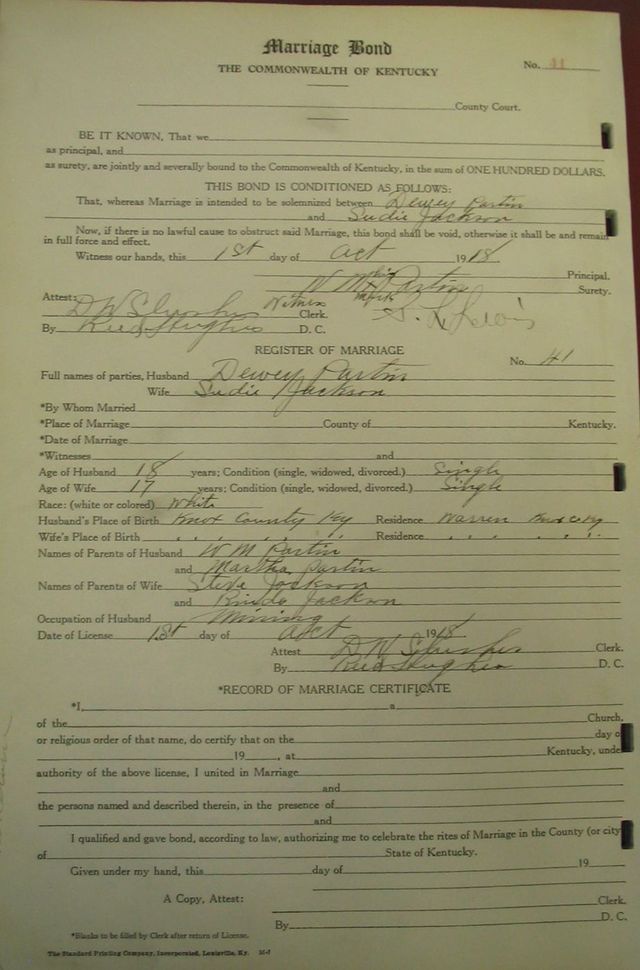 Marriage Bond
THE COMMONWEALTH OF KENTUCKY
No. 41
County Court.
BE IT KNOWN, That we
as principal, and
as surety, are jointly and severally bound to the Commonwealth of Kentucky, in the sum of ONE HUNDRED DOLLARS.
THIS BOND IS CONDITIONED AS FOLLOWS:
That, whereas Marriage is intended to be solemnized between Dewey Partin
and Sudie Jackson
Now, if there is no lawful cause to obstruct said Marriage, this bond shall be void, otherwise it shall be and remain
in full force and effect.
Witness our hands, this 1st day of Oct 1918
W M his Partin Principal.
mark Surety.
Attest: D W Slusher Witness Clerk. S. L. Lewis
By D. C.
REGISTER OF MARRIAGE
No. 41
Full names of parties, Husband Dewey Partin
Wife Sudie Jackson
*By Whom Married
*Place of Marriage County of Kentucky.
*Date of Marriage
*Witnesses and
Age of Husband 18 years; Condition (single, widowed, divorced.) Single
Age of Wife 17 years; Condition (single, widowed, divorced.) Single
Race: (white or colored) White
Husband's Place of Birth Knox County Ky Residence Warren Knox Co Ky
Wife's Place of Birth " " " Residence " " "
Names of Parents of Husband W M Partin
and Martha Partin
Names of Parents of Wife Steve Jackson
and Jackson
Occupation of Husband Mining
Date of License 1st day of Oct 1918
Attest D W Slusher Clerk.
By D. C.
*RECORD OF MARRIAGE CERTIFICATE
*I, a
of the Church,
or religious order of that name, do certify that on the day o
19 , at Kentucky, unde
authority of the above license, I united in Marriage
and
the persons named and described therein, in the presence of
and
I qualified and gave bond, according to law, authorizing me to celebrate the rites of Marriage in the County (or city
of State of Kentucky.
Given under my hand, this day of 19
A Copy, Attest: Clerk.
By D. C.
*Blanks to be filled by Clerk after return of License.
The Standard Printing Company, Incorporated, Louisville, Ky.